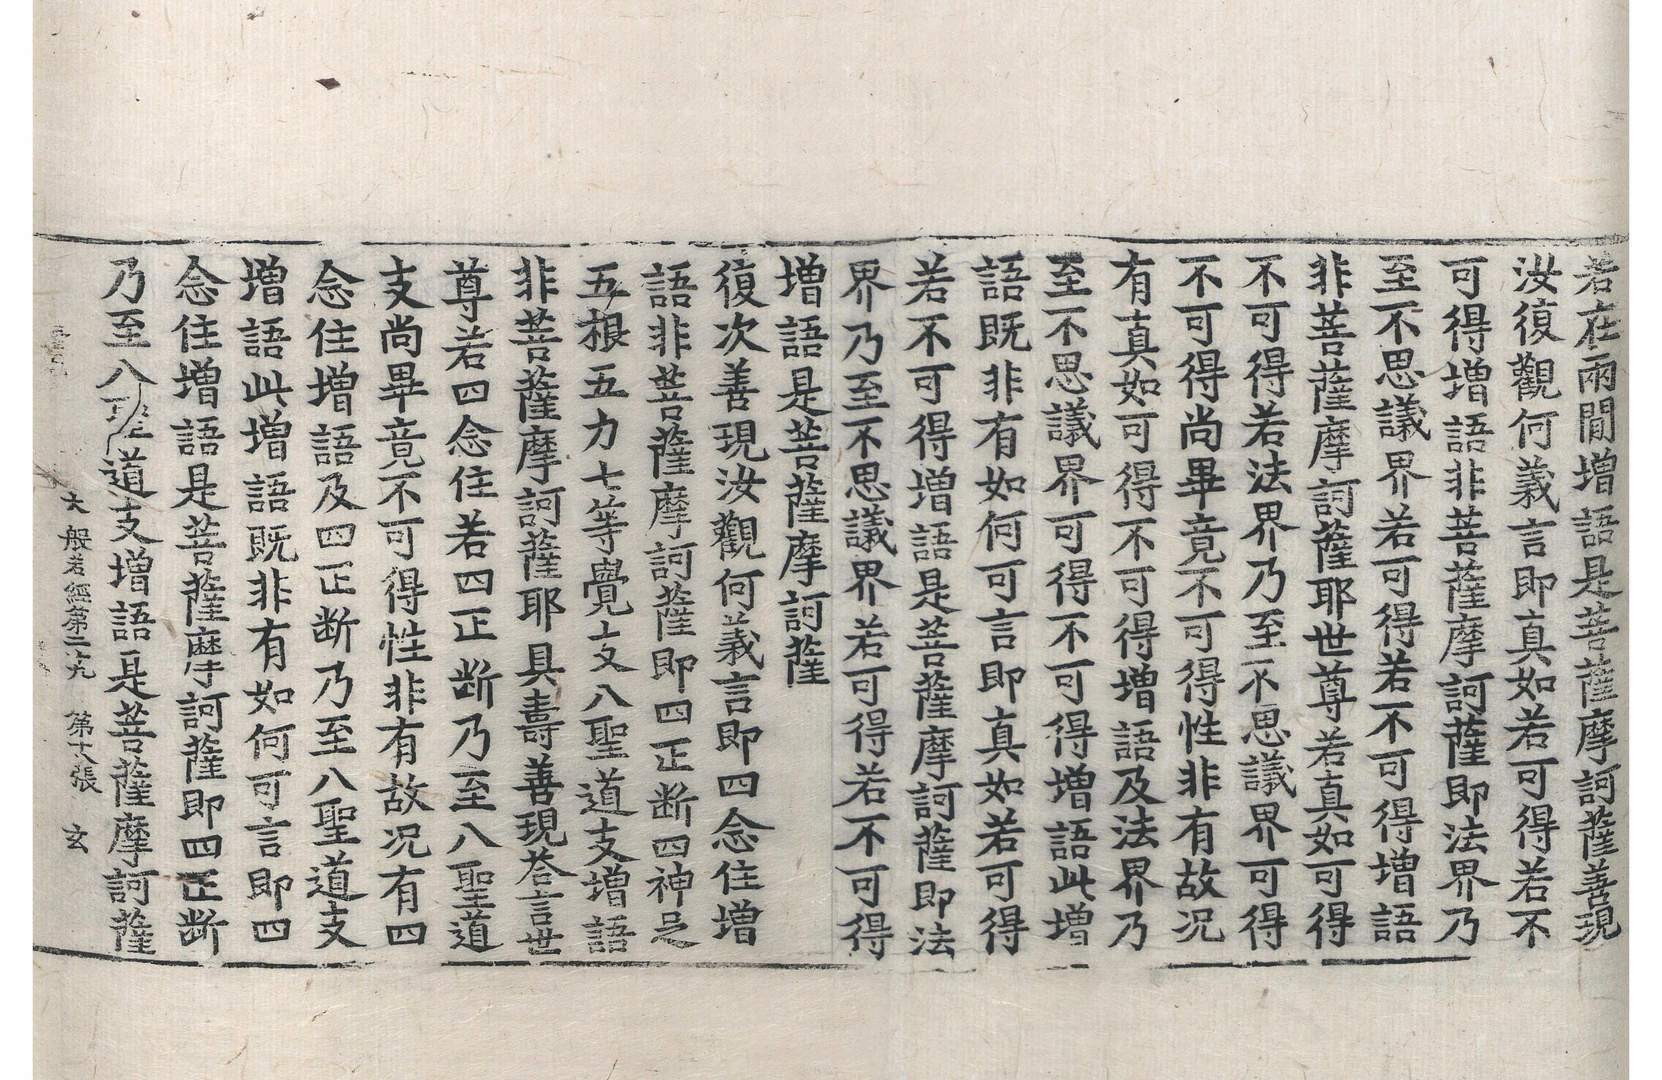 若在兩間增語是菩薩摩訶薩善現
汝復觀何義言即真如若可得若不
可得增語非菩薩摩訶薩即法界乃
至不思議界若可得若不可得增語
非菩薩摩訶薩耶世尊若真如可得
不可得若法界乃至不思議界可得
不可得尚畢竟不可得性非有故况
有真如可得不可得增語及法界乃
至不思議界可得不可得增語此增
語既非有如何可言即真如若可得
若不可得增語是菩薩摩訶薩即法
界乃至不思議界若可得若不可得
增語是菩薩摩訶薩
復次善現汝觀何義言即四念住增
語非菩薩摩訶薩即四正断四神足
五根五力七等覺支八聖道支增語
非菩薩摩訶薩耶具壽善現荅言世
尊若四念住若四正断乃至八聖道
支尚畢竟不可得性非有故况有四
念住增語及四正断乃至八聖道支
增語此增語既非有如何可言即四
念住增語是菩薩摩訶薩即四正断
乃至八聖道支增語是菩薩摩訶薩
大般若經第二九 第十八張 玄